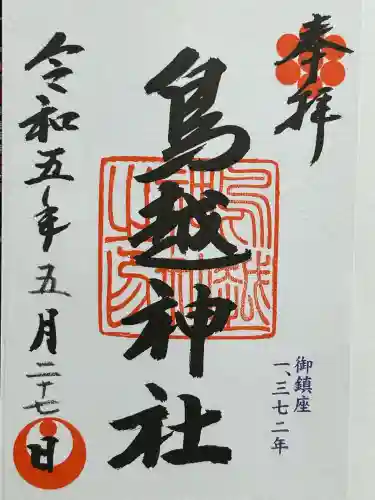 奉拝
鳥越神社
御鎮座
一、三七二年
令和五年五月二十七日